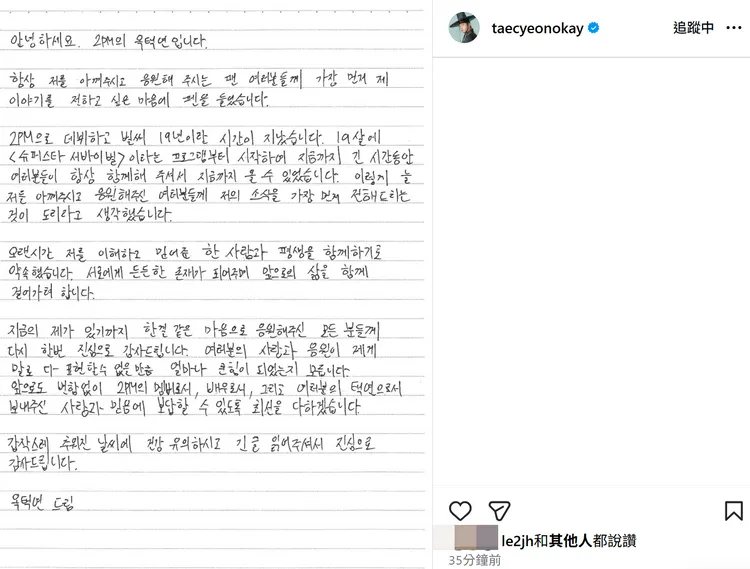 안녕하세요. 2PM의 옥택연입니다.
항상 저를 아껴주시고 응원해 주시는 팬 여러분들께 가장 먼저 제
이야기를 전하고 싶은 마음에 펜을 들었습니다.
2PM으로 데뷔하고 벌써 19년이란 시간이 지났습니다. 19살에
<슈퍼스타 서바이벌>이라는 프로그램부터 시작하여 지금까지 긴 시간동안
여러분들이 항상 함께해 주셔서 지금까지 올 수 있었습니다. 이렇게 늘
저를 아껴주시고 응원해주신 여러분들께 저의 소식을 가장 먼저 전해드리는
것이 도리라고 생각했습니다.
오랜시간 저를 이해하고 믿어준 한 사람과 평생을 함께하기로
약속했습니다. 서로에게 든든한 존재가 되어주며 앞으로의 삶을 함께
걸어가려 합니다.
지금의 제가 있기까지 한결 같은 마음으로 응원해주신 모든 분들께
다시 한번 진심으로 감사드립니다. 여러분의 사랑과 응원이 제게
말로 다 표현할수 없을만큼 얼마나 큰힘이 되었는지 모릅니다.
앞으로도 변함없이 2PM의 멤버로서, 배우로서, 그리고 여러분의 택연으로서
보내주신 사랑과 믿음에 보답할 수 있도록 최선을 다하겠습니다
갑작스레 추워진 날씨에 건강 유의하시고 긴 글 읽어주셔서 진심으로
감사드립니다.
옥택연 드림
taecyeonokay
追蹤中
le2jh和其他人都說讚
35分鐘前